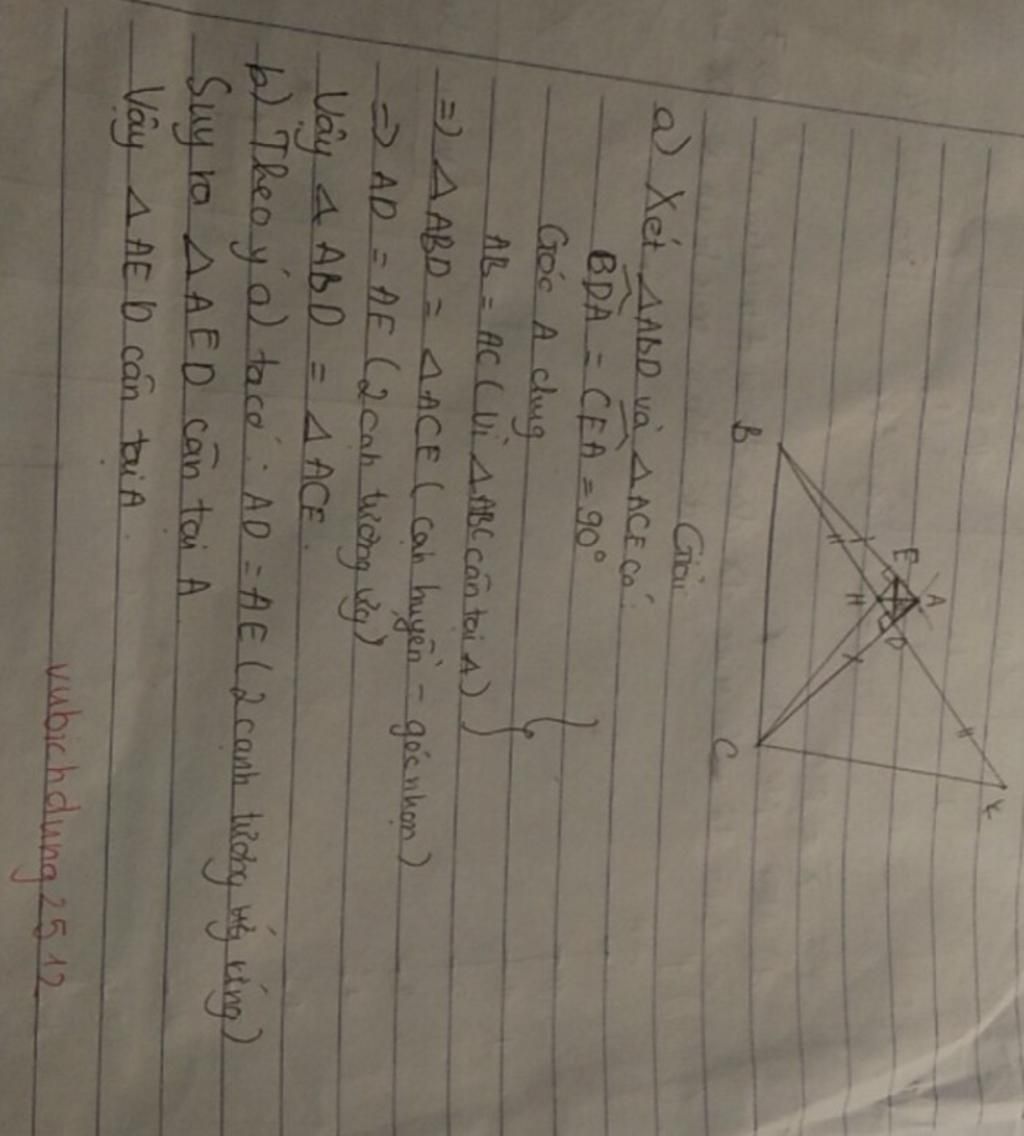 K
A
E
D
H
B
C
Giải
a) Xét ΔABD và ΔACE có:
BDA = CEA = 90°
Góc A chung
AB = AC (Vì ΔABC cân tại A)
=) ΔABD = ΔACE (cạnh huyền - góc nhọn)
=) AD = AE (2 cạnh tương ứng)
Vậy ΔABD = ΔACE.
b) Theo ý a) ta có: AD = AE (2 cạnh tương ứng)
Suy ra ΔAED cân tại A
Vậy ΔAED cân tại A.
vubichdung2512